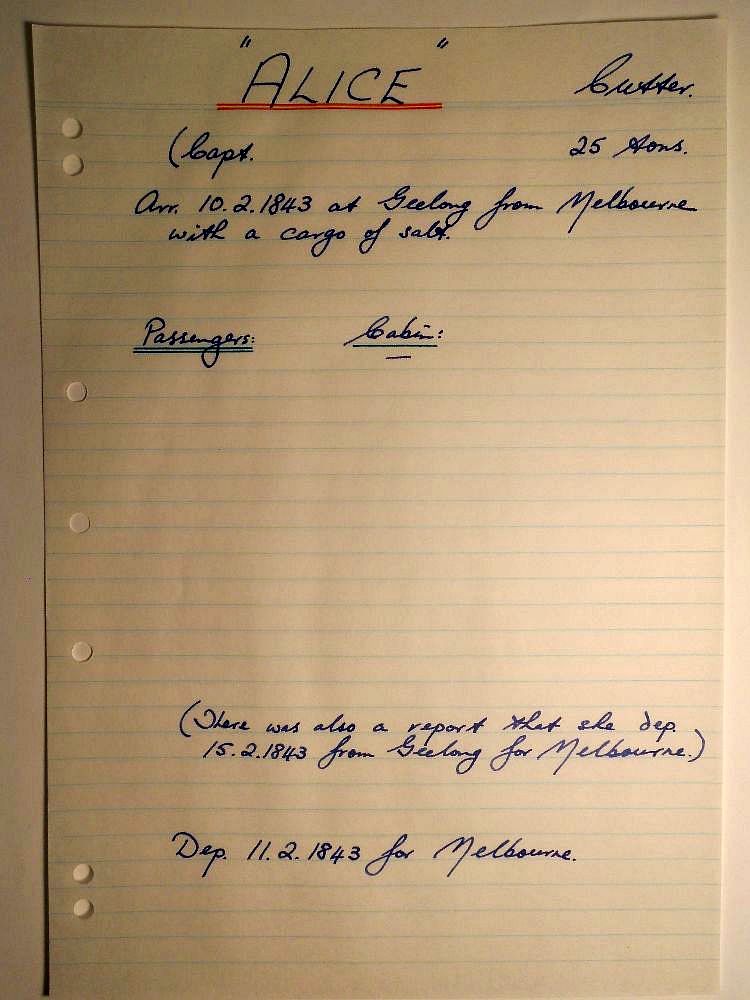 "ALICE" Cutter.
(Capt. 25 tons.
Arr. 10.2.1843 at Geelong from Melbourne
with a cargo of salt.
Passengers: Cabin:
—
(There was also a report that she dep.
15.2.1843 from Geelong for Melbourne.)
Dep. 11.2.1843 for Melbourne.